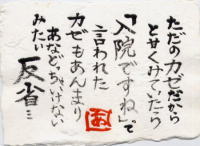 ただのカゼだから
と甘くみていたら
「入院ですね」って
言われた
カゼもあんまり
あなどっちゃいけない
みたい
反省…